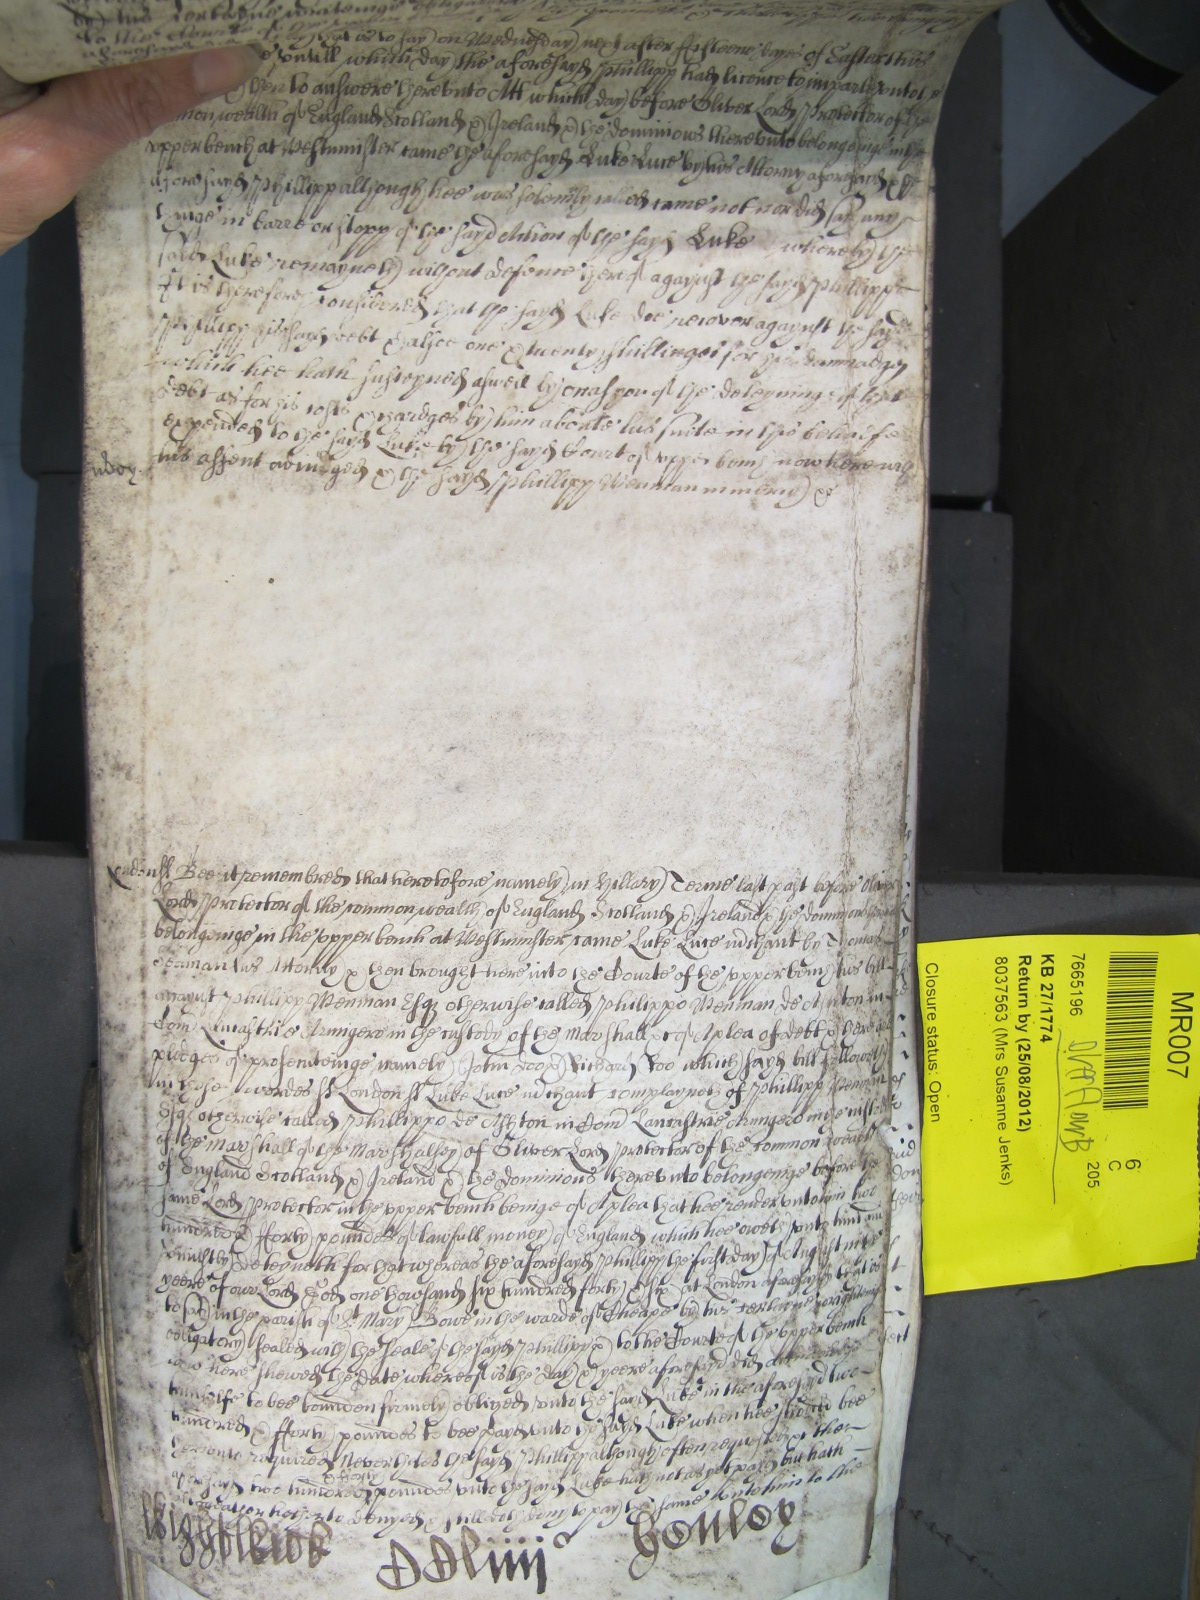 to say) on Wednesday next after fifteene dayes of Easter this
untill which day the aforesayd Phillipp had licence to imparle unto the
then to answere thereunto Att which day before Oliver Lord Protector of the
monwealth of England Scotland & Ireland & the dominions thereunto belonginge in the
upper bench at Westminster came the aforesayd Luke Luce by his Attorny aforesayd & the
aforesayd Phillipp although hee was solemly called came not nor did say any
thinge in barre or stopp of the sayd Action of the sayd Luke whereby the
sayd Luke remayneth without defence thereof against the sayd Phillipp
It is therefore considered that the sayd Luke doe recover against the sayd
Phillipp his sayd debt & alsoe one & twenty shillinges for his dammadges
which hee hath susteyned aswell by occasion of the deteyninge of that
debt as for his costs & chardges by him aboute his suite in this behalfe
expended to the sayd Luke by the sayd Court of upper bench now here with
his assent adiudged & the sayd Phillipp Wenman in mercy &c
London ss Bee it remembred that heretofore namely in Hillary Terme last past before Oliver
Lord Protector of the common wealth of England Scotland & Ireland & the dominions
belonginge in the upper bench at Westminster came Luke Luce mchant by Thomas
Seaman his Attorny & then brought here into the Courte of the upper bench his bill
against Phillipp Wenman Esqr otherwise called Philippo Wenman de Ashton in
Com Lancastrie Armigero in the custody of the Marshall &c of A plea of debt & there are
pledges of prosecuteinge namely John Doo & Richard Roo which sayd bill followeth
in these wordes ss London ss Luke Luce mchant complaynes of Phillipp Wenman
Esqr otherwise called Phillippo de Ashton in Com Lancastrie Armigero in the custody
of the Marshall of the Marshallsey of Oliver Lord Protector of the common wealth
of England Scotland & Ireland & the Dominions thereunto belonginge before the
same Lord Protector in the upper bench beinge of A plea that hee render unto him two
hundred & fforty poundes of lawfull money of England which hee oweth unto him and
uniustly deteyneth for that whereas the aforesayd Phillipp the first day of August in the
yeere of our Lord God one thowsand six hundred forty & six at London aforesayd that is
to say in the parish of St Mary Bowe in the warde of Cheape by his certayne writinge
obligatory sealed with the seale of the sayd Phillipp & to the Courte of the upper bench
now here shewed the date whereof is the day & yeere aforesayd did acknowledge
himselfe to bee bounden firmely obliged unto the sayd Luke in the aforesayd two
hundred & fforty poundes to bee payd unto the sayd Luke when hee should bee
thereunto required Neverthelesse the sayd Phillipp although often requested the
aforesayd two hundred & forty poundes unto the sayd Luke hath not as yet payd but hath
hitherto denyed & still doth deny to pay the same unto him to the
Wightwick
Conley
MR007
7665196
6
C
205
KB 27/1774
Return by (25/08/2012)
8037563 (Mrs Susanne Jenks)
Closure status: Open